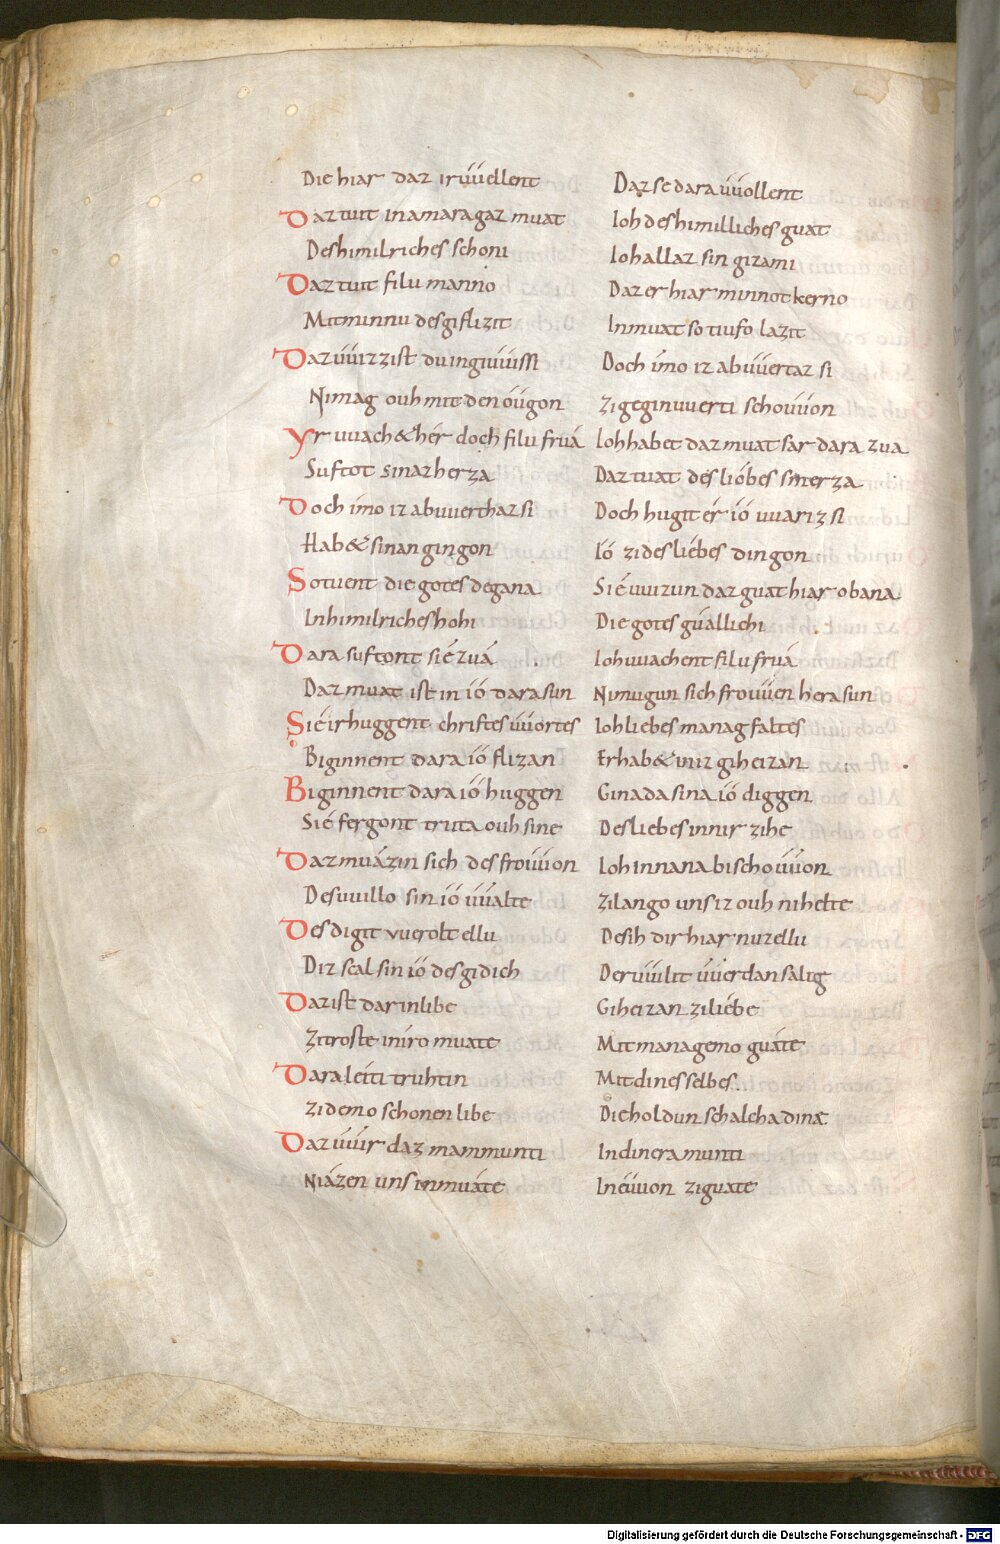 Die hiar daz iruuellent Daz se dara uuollent
Daz tuit in amaragaz muat Ioh des himilliches guat
Des himilriches schoni Ioh allaz sin gizami
Daz tuit filu manno Daz er hiar minnot kerno
Mit minnu des giflizit In muat so tiufo lazit
Daz uuizzist du in giuuissi Doch imo iz abuuertaz si
Ni mag ouh mit den óugon Zi geginuuerti schouuon
Yruuach& hér doch filu fruá Ioh habet daz muat sar dara zua
Suftot sinaz herza Daz tuat des liobes smerza
Doch ímo iz abuuerthaz si Doch hugit ér ió uuar iz si
Hab& sinan gingon Ió zi des liébes dingon
So tuent die gotes degana Sié uuizun daz guat hiar obana
In himilriches hohi Die gotes guallichi
Dara suftont sié zuá Ioh uuachent filu fruá
Daz muat ist in ió dara sun Ni mugun sich frouuen hera sun
Sié irhuggent christes uuortes Ioh liebes managfaltes
Biginnent dara ió flizan Er hab& iniz giheizan
Biginnent dara ió huggen Ginada sina ió diggen
Sié fergont truta ouh sine Des liebes in nir zihe
Daz muázin sich des frouuon Ioh innana bischouuon
Des uuillo sin ió uualte Zi lango uns iz ouh ni helte
Des digit vuerolt ellu Des ih dir hiar nu zellu
Diz scal sin ió des gidich Der uuilit uuerdan salig
Daz ist dar in libe Giheizan zi liébe
Zi troste in íro muate Mit managemo guáte
Dara léiti truhtin Mit dines selbes
Zi demo schonen libe Die holdun schalcha dinæ
Daz uuir daz mammunti In dinera munti
Niázen uns in muáte In éuuon zi guate
Digitalisierung gefördert durch die Deutsche Forschungsgemeinschaft - DFG